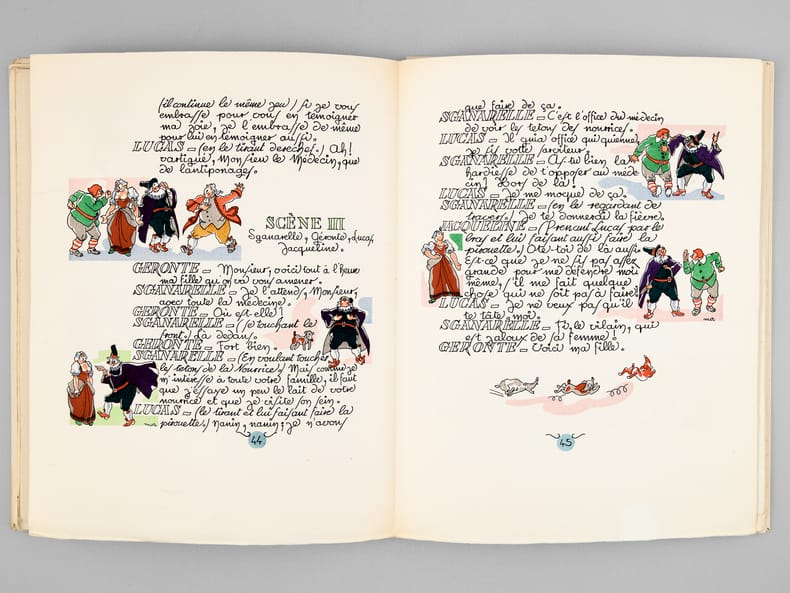 (il continue le même jeu) si je vous
embrasse pour vous en témoigner
ma joie, je l'embrasse de même
pour lui en témoigner aussi.
LUCAS — (en le tirant derechef.) Ah!
vartigue, Monsieur le Médecin, que
de lantiponages.
SCÈNE III
Sganarelle, Géronte, Lucas,
Jacqueline.
GERONTE — Monsieur, voici tout à l'heure
ma fille qu'on va vous amener.
SGANARELLE — Je l'attends, Monsieur,
avec toute la médecine.
GERONTE — Où est elle!
SGANARELLE — (se touchant le
front.) Là dedans.
GERONTE — Fort bien.
SGANARELLE — (En voulant toucher
les tetons de la Nourrice.) Mais, comme je
m'intéresse à toute votre famille, il faut
que j'essaye un peu le lait de votre
nourrice et que je visite son sein.
LUCAS — (le tirant et lui faisant faire la
pirouette.) Nanin, nanin; je n'avons
44
que faire de ça.
SGANARELLE — C'est l'office du médecin
de voir les tetons des nourrices.
LUCAS — Il gnia office qui quienne,
je sis votte sarviteur.
SGANARELLE — As-tu bien la
hardiesse de t'opposer au méde
cin! Hors de là!
LUCAS — Je me moque de ça.
SGANARELLE — (en le regardant de
travers.) Je te donnerai la fièvre.
JACQUELINE — (Prenant Lucas par le
bras et lui faisant aussi faire la
pirouette.) Ôte-toi de là aussi.
Est-ce que je ne sis pas assez
grande pour me défendre moi
même, s'il me fait quelque
chose qui ne soit pas à faire!
LUCAS — Je ne veux pas qu'il
te tâte, moi.
SGANARELLE — Fi, le vilain, qui
est jaloux de sa femme!
GERONTE — Voici ma fille.
45